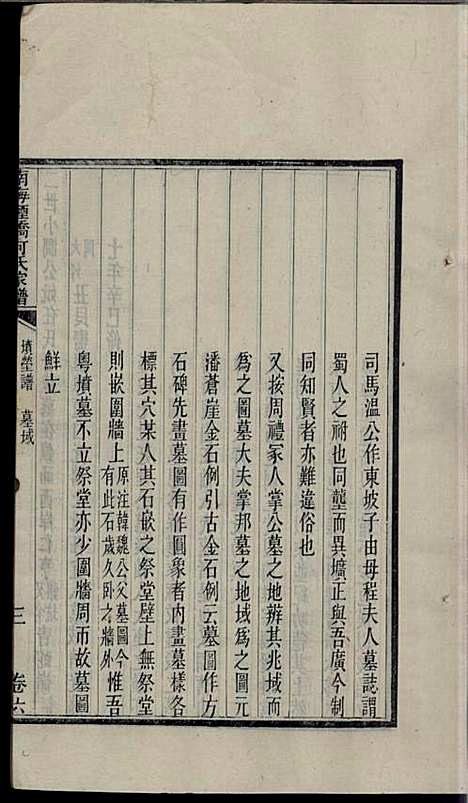 司馬温公作東坡子由母程夫人墓誌謂
蜀人之祔也同壟而異壙正與吾廣今制
同知賢者亦難違俗也
又按周禮冢人掌公墓之地辨其兆域而
為之圖墓大夫掌邦墓之地域為之圖元
潘蒼崖金石例引古金石例云墓圖作方
石碑先畫墓圖有作圓象者内畫墓樣各
標其穴某人其石嵌之祭堂壁上無祭堂
則嵌圍牆上原注韓魏公父墓圖今有此石歲久卧之牆外惟吾
粤墳墓不立祭堂亦少圍牆周帀故墓圖
鮮立
南海煙橋何氏家譜
墳塋譜 墓域
三
卷六